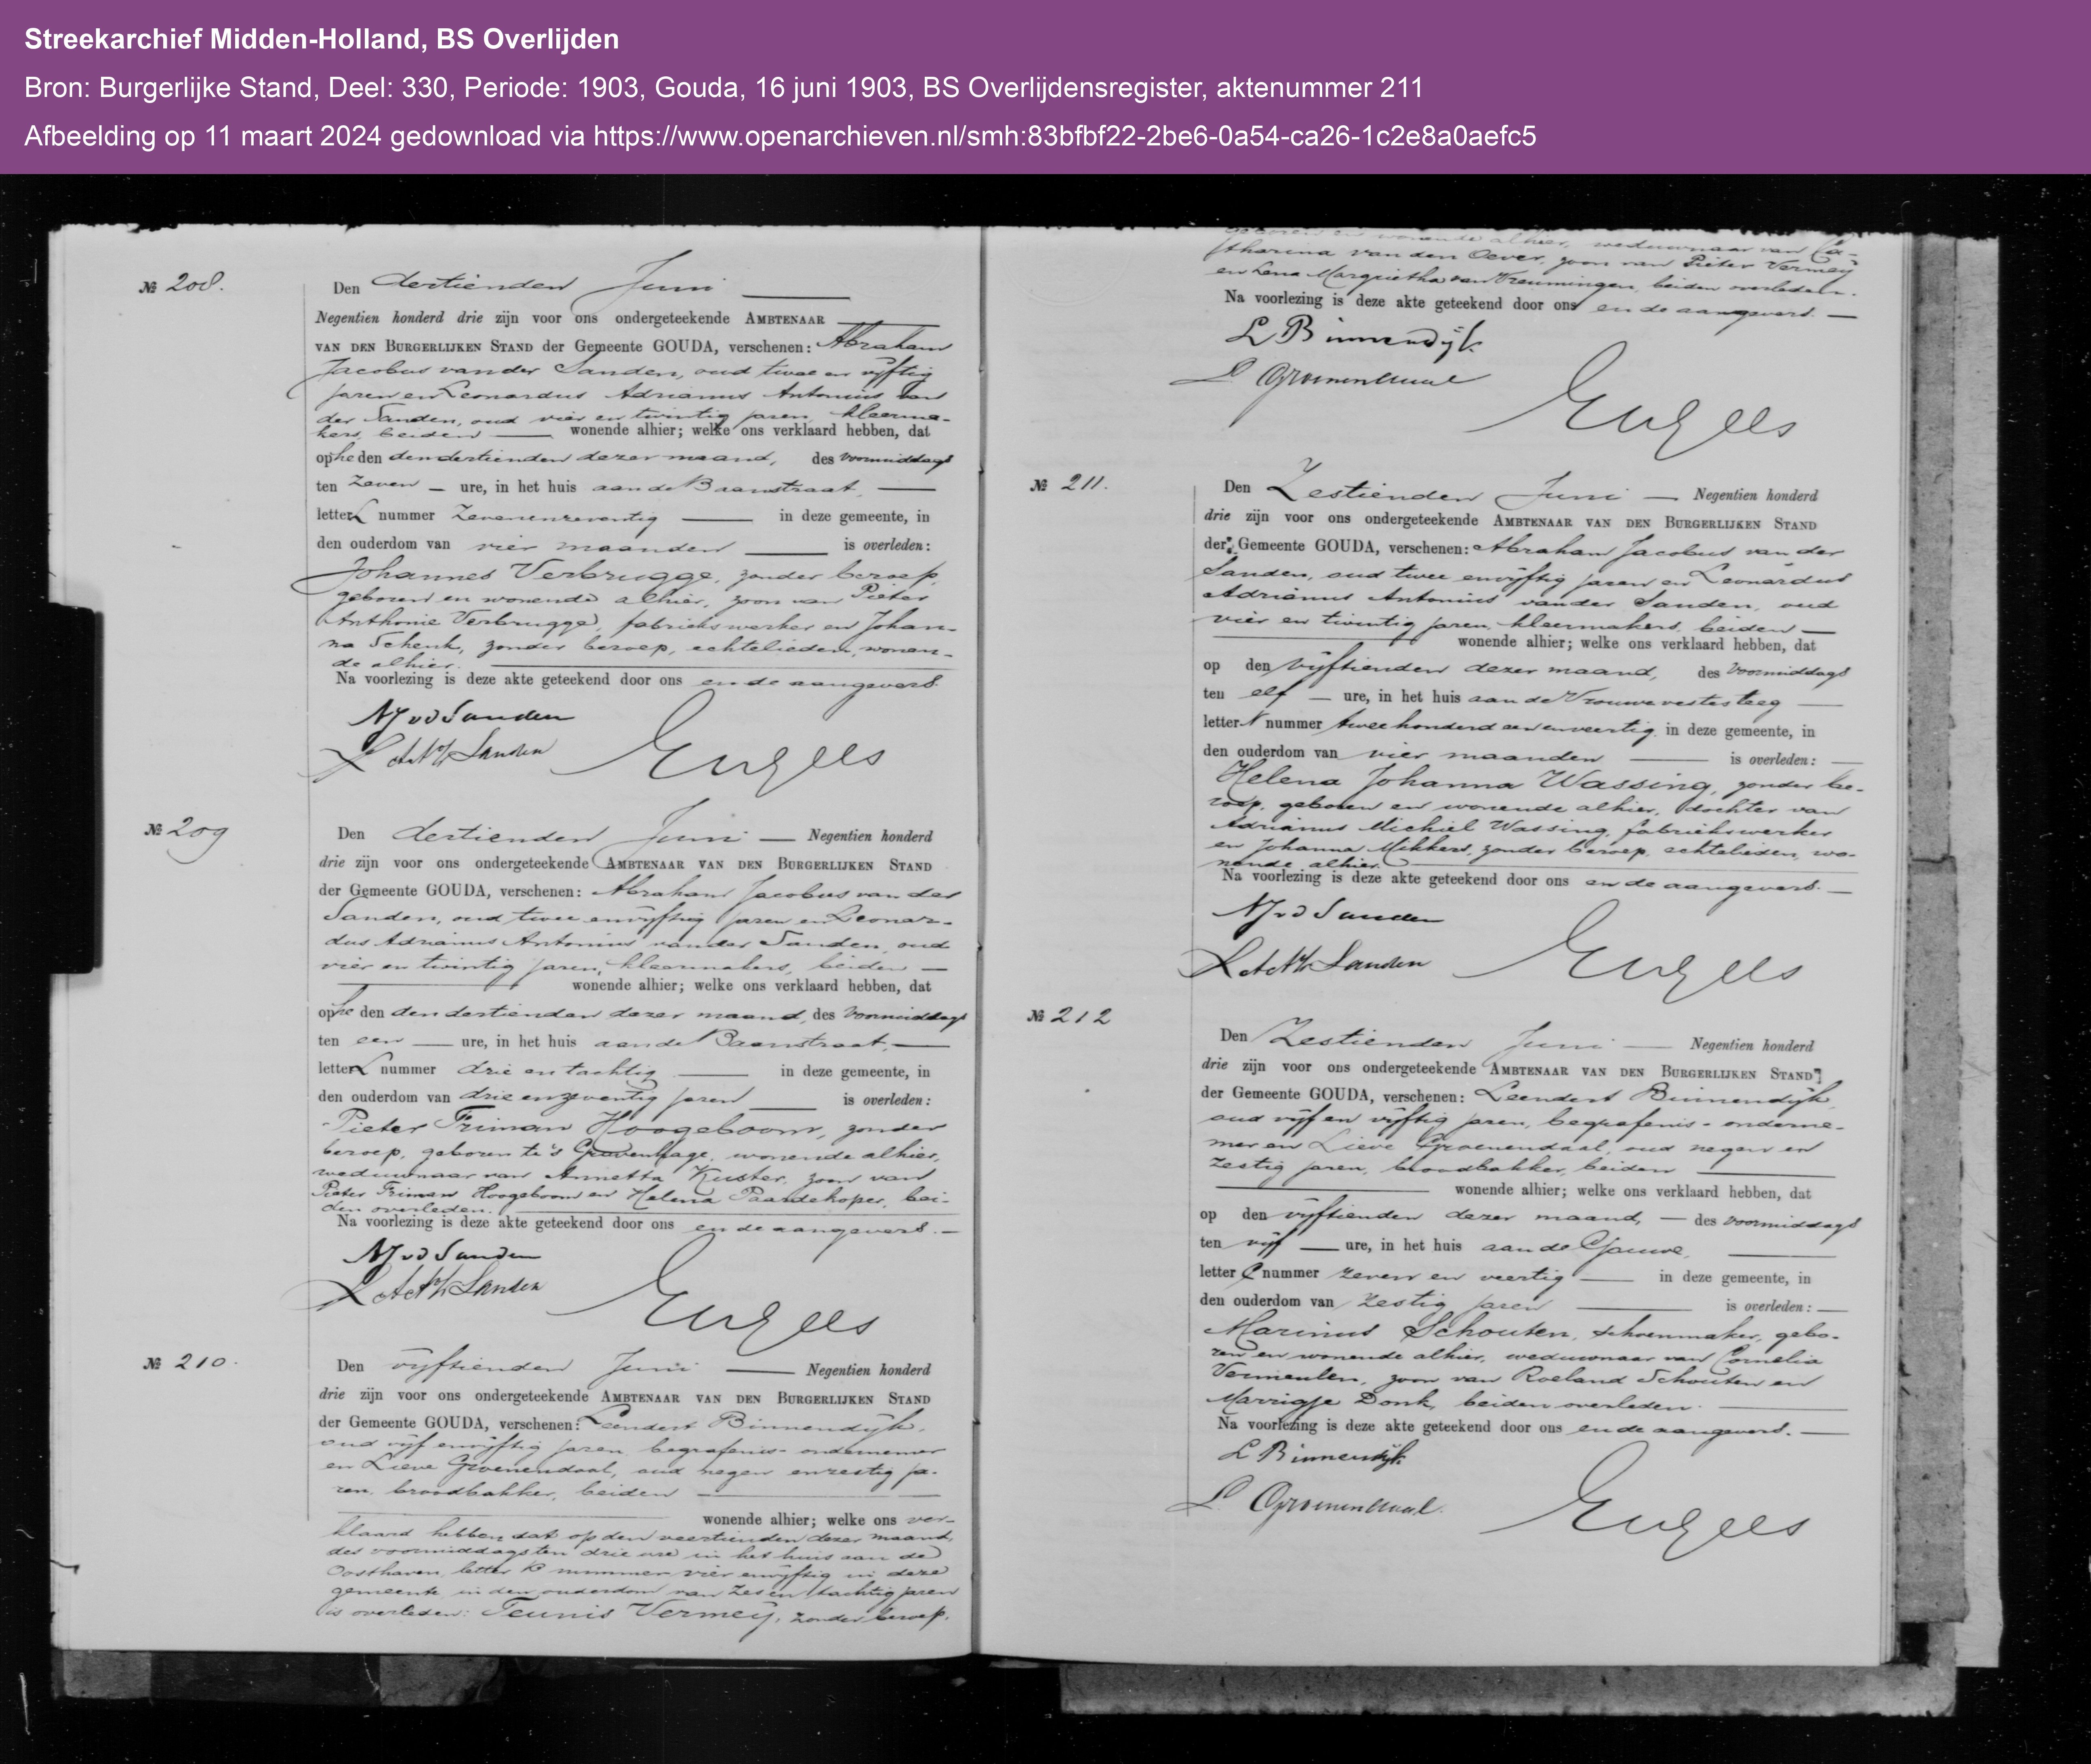 Streekarchief Midden-Holland, BS Overlijden
Bron: Burgerlijke Stand, Deel: 330, Periode: 1903, Gouda, 16 juni 1903, BS Overlijdensregister, aktenummer 211
Afbeelding op 11 maart 2024 gedownload via https://www.openarchieven.nl/smh:83bfbf22-2be6-0a54-ca26-1c2e8a0aefc5
№ 208.
Den dertienden Juni
Negentien honderd drie zijn voor ons ondergeteekende AMBTENAAR
VAN DEN BURGERLIJKEN STAND der Gemeente GOUDA, verschenen: Abraham
Jacobus van der Sanden, oud twee en vijftig
jaren en Leonardus Adrianus Antonius van
der Sanden, oud vier en twintig jaren, kleerma-
kers, beiden wonende alhier; welke ons verklaard hebben, dat
op heden den dertienden dezer maand, des voormiddags
ten zeven ure, in het huis aan de Baanstraat,
letter L nummer zevenenzeventig in deze gemeente, in
den ouderdom van vier maanden is overleden:
Johannes Verbrugge, zonder beroep,
geboren en wonende alhier, zoon van Pieter
Anthonie Verbrugge, fabriekswerker en Johan-
na Schenk, zonder beroep, echtelieden, wonen-
de alhier.
Na voorlezing is deze akte geteekend door ons en de aangevers.
AJ v d Sanden
L A A v d Sanden
Engels
№ 209
Den dertienden Juni Negentien honderd
drie zijn voor ons ondergeteekende AMBTENAAR VAN DEN BURGERLIJKEN STAND
der Gemeente GOUDA, verschenen: Abraham Jacobus van der
Sanden, oud twee en vijftig jaren en Leonar-
dus Adrianus Antonius van der Sanden, oud
vier en twintig jaren, kleermakers, beiden
wonende alhier; welke ons verklaard hebben, dat
op heden den dertienden dezer maand, des voormiddags
ten een ure, in het huis aan de Baanstraat,
letter L nummer drie en tachtig in deze gemeente, in
den ouderdom van drie en zeventig jaren is overleden:
Pieter Friman Hoogeboom, zonder
beroep, geboren te 's Gravenhage, wonende alhier,
weduwnaar van Annetta Kuster, zoon van
Pieter Friman Hoogeboom en Helena Paardekoper, bei-
den overleden.
Na voorlezing is deze akte geteekend door ons en de aangevers.
AJ v d Sanden
L A A v d Sanden
Engels
№ 210.
Den vijftienden Juni Negentien honderd
drie zijn voor ons ondergeteekende AMBTENAAR VAN DEN BURGERLIJKEN STAND
der Gemeente GOUDA, verschenen: Leendert Binnendijk,
oud vijf en vijftig jaren, begrafenis-ondernemer
en Lieve Groenendaal, oud negen en zestig ja-
ren, broodbakker, beiden
wonende alhier; welke ons ver-
klaard hebben, dat op den veertienden dezer maand,
des voormiddags ten drie ure in het huis aan de
Oosthaven, letter B nummer vier en vijftig in deze
gemeente, in den ouderdom van zes en tachtig jaren
is overleden: Teunis Vermeij, zonder beroep,
geboren en wonende alhier, weduwnaar van Ca-
tharina van den Oever, zoon van Pieter Vermeij
en Lena Margrietha van Vreumingen, beiden overleden.
Na voorlezing is deze akte geteekend door ons en de aangevers.
L Binnendijk
L Groenendaal
Engels
№ 211.
Den Zestienden Juni Negentien honderd
drie zijn voor ons ondergeteekende AMBTENAAR VAN DEN BURGERLIJKEN STAND
der Gemeente GOUDA, verschenen: Abraham Jacobus van der
Sanden, oud twee en vijftig jaren en Leonardus
Adrianus Antonius van der Sanden, oud
vier en twintig jaren, kleermakers, beiden
wonende alhier; welke ons verklaard hebben, dat
op den vijftienden dezer maand, des voormiddags
ten elf ure, in het huis aan de Vrouwevestesteeg
letter N nummer twee honderd een en veertig in deze gemeente, in
den ouderdom van vier maanden is overleden:
Helena Johanna Wassing, zonder be-
roep, geboren en wonende alhier, dochter van
Adrianus Michiel Wassing, fabriekswerker
en Johanna Mikkers, zonder beroep, echtelieden, wo-
nende alhier.
Na voorlezing is deze akte geteekend door ons en de aangevers.
AJ v d Sanden
L A A v d Sanden
Engels
№ 212
Den Zestienden Juni Negentien honderd
drie zijn voor ons ondergeteekende AMBTENAAR VAN DEN BURGERLIJKEN STAND
der Gemeente GOUDA, verschenen: Leendert Binnendijk,
oud vijf en vijftig jaren, begrafenis-onderne-
mer en Lieve Groenendaal, oud negen en
zestig jaren, broodbakker, beiden
wonende alhier; welke ons verklaard hebben, dat
op den vijftienden dezer maand, des voormiddags
ten vijf ure, in het huis aan de Gouwe,
letter C nummer zeven en veertig in deze gemeente, in
den ouderdom van zestig jaren is overleden:
Marinus Schouten, schoenmaker, gebo-
ren en wonende alhier, weduwnaar van Cornelia
Vermeulen, zoon van Roeland Schouten en
Marrigje Donk, beiden overleden.
Na voorlezing is deze akte geteekend door ons en de aangevers.
L Binnendijk
L Groenendaal
Engels